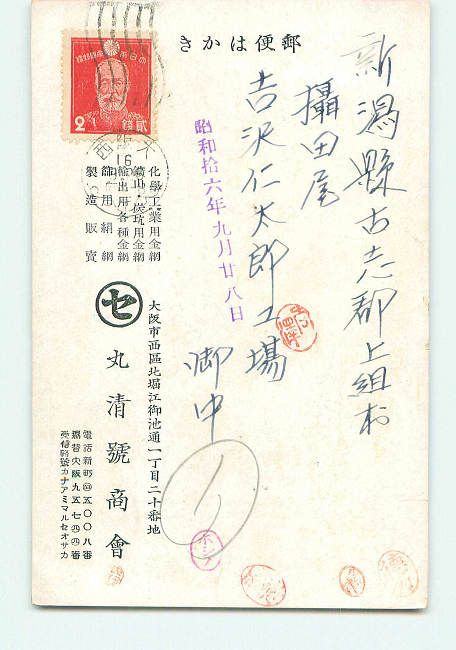 郵便はかき
新潟縣古志郡上組村
攝田尾
吉沢仁太郎工場
御中
昭和拾六年九月廿八日
化學工業用金網
鑛山・炭坑用金網
輸出用各種金網
篩用絹網
製造販賣
セ
大阪市西區北堀江御池通一丁目二十番地
丸清號商會
電話新町五〇〇八番
振替大阪九五七四四番
受信略號カナアミマルセオサカ
2
貳
16